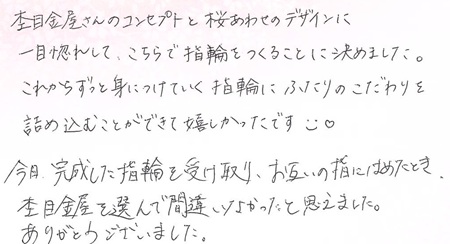 杢目金屋さんのコンセプトと桜あわせのデザインに
一目惚れして、こちらで指輪をつくることに決めました。
これからずっと身につけていく指輪にふたりのこだわりを
詰め込むことができて嬉しかったです
今日、完成した指輪を受け取り、お互いの指にはめたとき、
杢目金屋を選んで間違いなかったと思えました。
ありがとうございました。